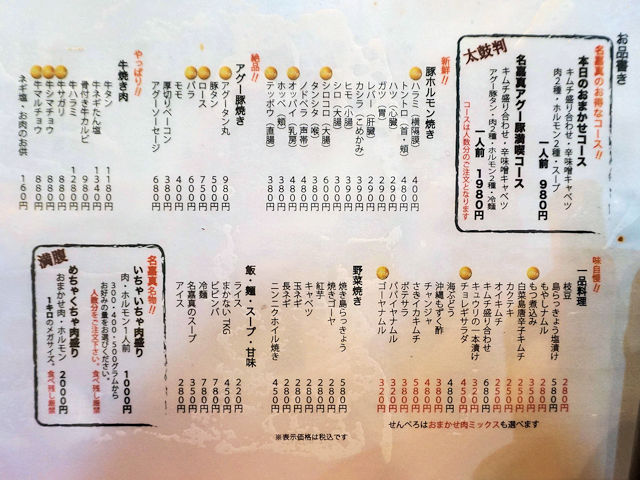 お品書き
名嘉真のお得なコース!!
本日のおまかせコース
キムチ盛り合わせ・辛味噌キャベツ
肉2種・ホルモン2種・スープ
一人前 980円
太鼓判
名嘉真アグー豚満喫コース
キムチ盛り合わせ・辛味噌キャベツ
アグー豚タン・肉2種・ホルモン2種・冷麺
一人前 1980円
コースは人数分のご注文となります
新鮮!!
豚ホルモン焼き
ハラミ(横隔膜) 400円
トントロ(首・頬) 480円
ハツ(心臓) 290円
レバー(肝臓) 290円
ガツ(胃) 290円
カシラ(こめかみ)
ヒモ(小腸)
シロ(大腸)
シロコロ(大腸)
タンシタ(喉)
ノドベラ(声帯) 480円
オッパイ(乳房) 480円
ホッペ(頬)
テッポウ(直腸) 380円
絶品!!
アグー豚焼き
アグータン丸 980円
豚タン 500円
ロース 750円
バラ 600円
モモ 400円
厚切りベーコン 380円
アグーソーセージ 680円
やっぱり!!
牛焼き肉
牛タン 1180円
牛ネギたん塩 1340円
骨付き牛カルビ 1280円
牛ハラミ 1180円
牛サガリ 880円
牛シマチョウ 880円
牛マルチョウ 880円
ネギ塩・お肉のお供 160円
味自慢!!
一品料理
枝豆 280円
島らっきょう塩漬け 580円
もやしナムル 250円
もつ煮込み 350円
白菜島唐辛子キムチ
カクテキ
オイキムチ 250円
キムチ盛り合わせ 680円
キュウリの一本漬け
チョレギサラダ 450円
海ぶどう 480円
沖縄もずく酢 380円
チャンジャ 480円
さきイカキムチ 580円
ポテサラ 380円
パパイヤナムル 320円
ゴーヤーナムル 320円
せんべろはおまかせ肉ミックスも選べます
野菜焼き
焼き島らっきょう 580円
焼きゴーヤ 280円
紅芋 280円
キャベツ 280円
玉ネギ 280円
長ネギ 280円
ニンニクホイル焼き 450円
飯・麺・スープ・甘味
ライス 220円
まかないTKG 450円
ビビンバ 780円
冷麺 780円
名嘉真のスープ 350円
アイス 280円
名嘉真名物!!
いちゃいちゃ肉盛り
肉・ホルモン1人前 1000円
300・400・500グラムから
お好みの量をお選びください。
人数分をご注文下さい。食べ残し厳禁
満腹
めちゃくちゃ肉盛り
おまかせ肉・ホルモン 2000円
1キロのメガサイズ。食べ残し厳禁
※表示価格は税込です